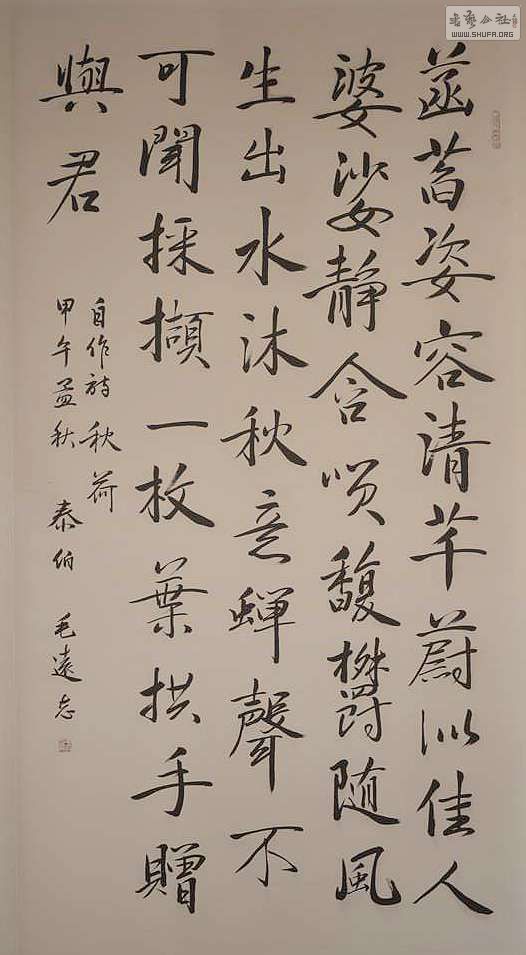 菡萏姿容清芊蔚似佳人
婆娑静含唄馥欝随风
生出水沐秋意蝉聲不
可闻採擷一枚葉拱手贈
與君
自作詩秋荷
甲午孟秋 泰伯 毛遠志
書藝公社
WWW.SHUFA.ORG